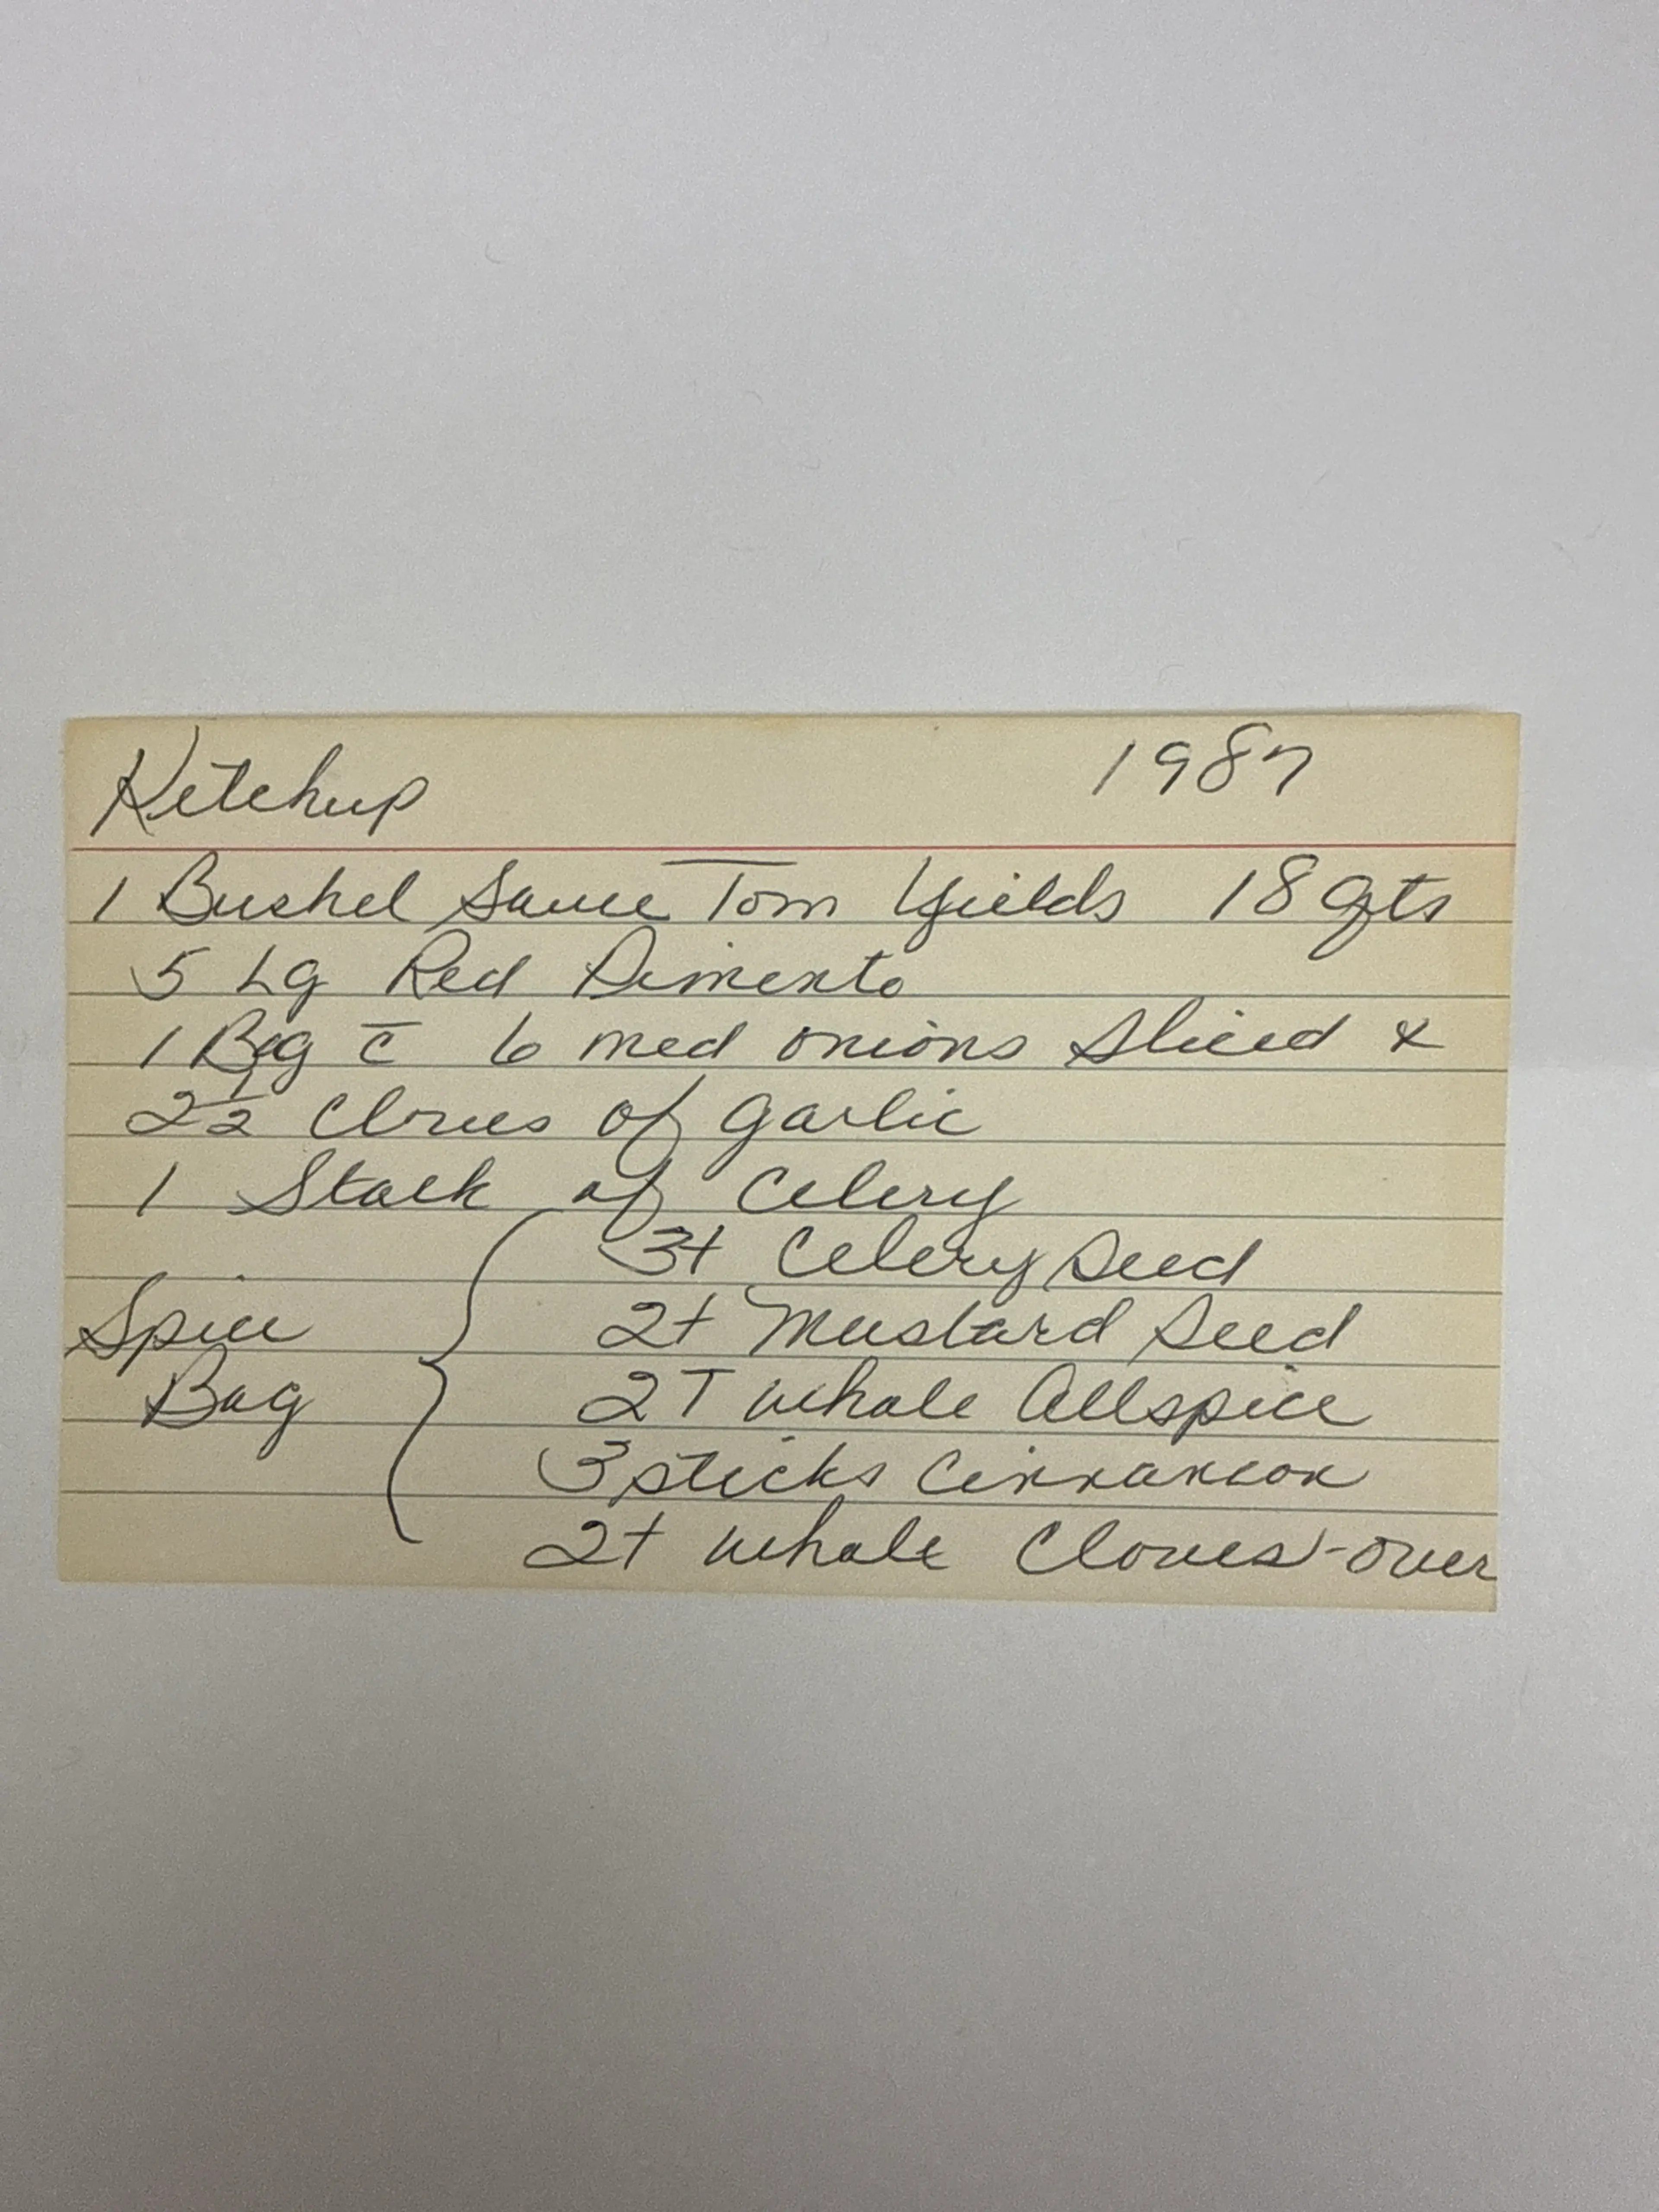 Ketchup 1987
1 Bushel Sauce Tom Yields 18 qts
5 Lg Red Pimento
1 Bag c̄ 6 med onions Sliced &
2½ Cloves of garlic
1 Stalk of Celery
3t Celery Seed
Spice 2t Mustard Seed
Bag 2T whole Allspice
3 sticks Cinnamon
2t whole Cloves - over